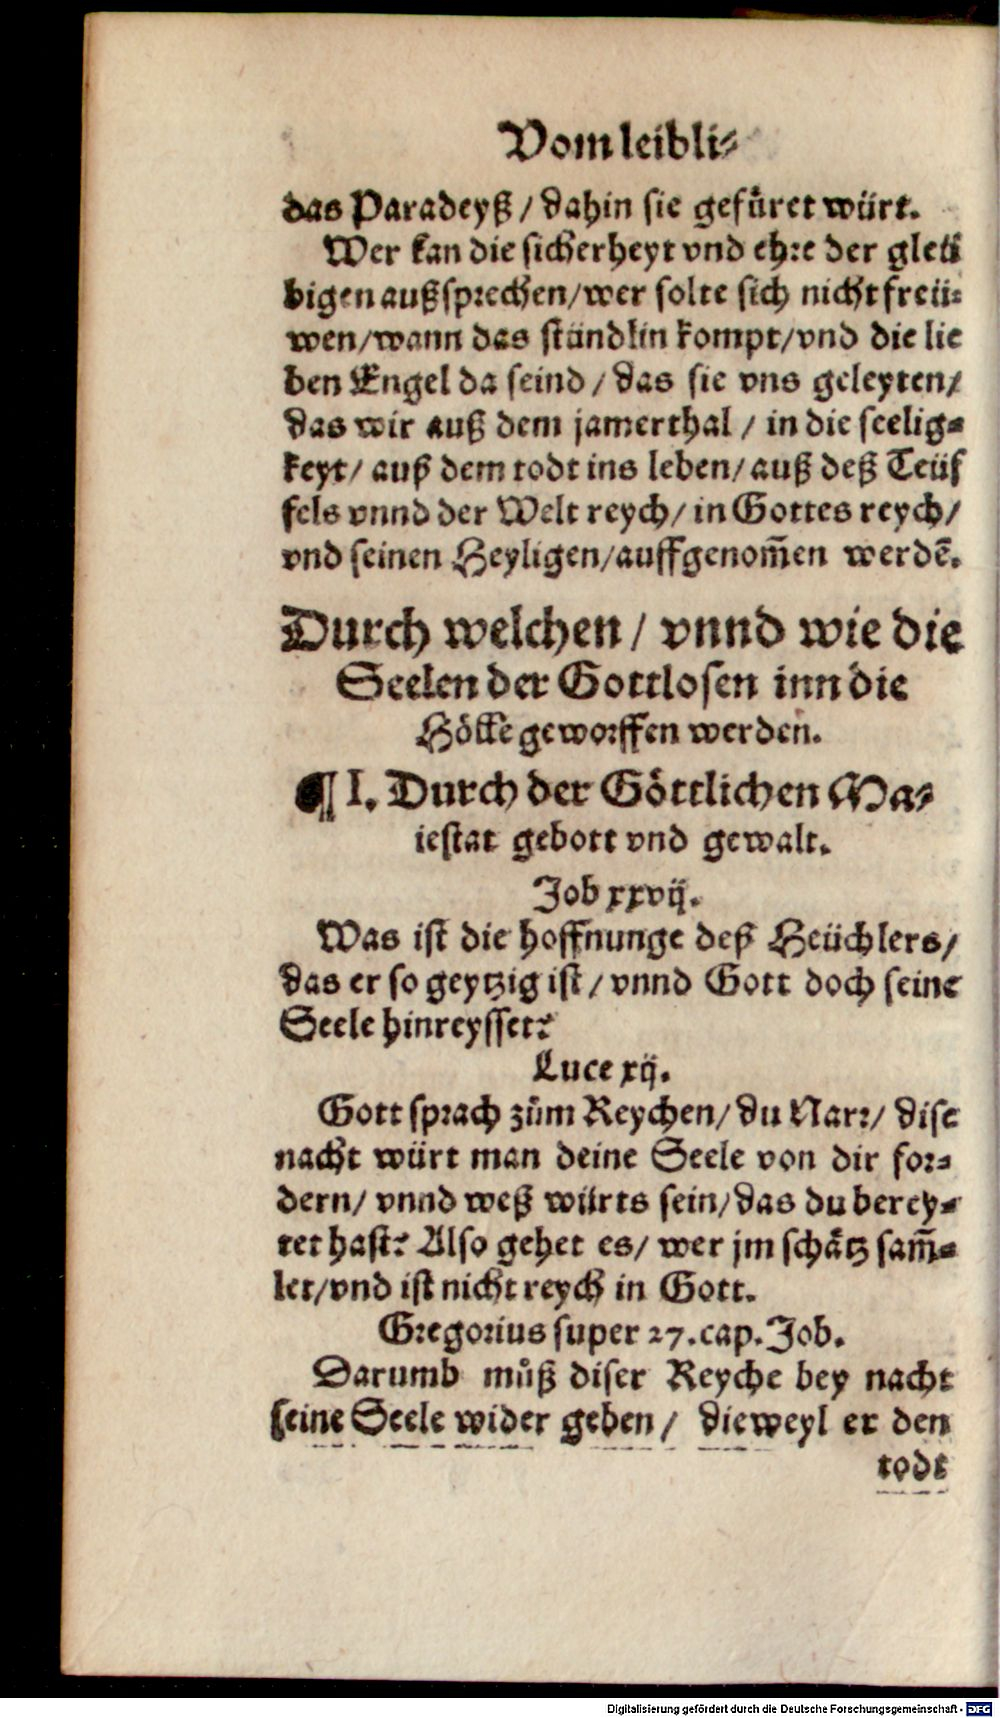 Vom leibli⸗
das Paradeyß / dahin sie gefüret würt.
Wer kan die sicherheyt vnd ehre der gleü
bigen außsprechen/wer solte sich nicht freü⸗
wen/wann das stündlin kompt/vnd die lie
ben Engel da seind / das sie vns geleyten/
das wir auß dem jamerthal / in die seelig⸗
keyt/ auß dem todt ins leben/ auß deß Teüf
fels vnnd der Welt reych/ in Gottes reych/
vnd seinen Heyligen/auffgenom̃en werdē.
Durch welchen / vnnd wie die
Seelen der Gottlosen inn die
Hölle geworffen werden.
¶ I. Durch der Göttlichen Ma⸗
iestat gebott vnd gewalt.
Job xxvij.
Was ist die hoffnunge deß Heüchlers/
das er so geytzig ist / vnnd Gott doch seine
Seele hinreysset?
Luce xij.
Gott sprach zům Reychen/ du Narr/ dise
nacht würt man deine Seele von dir for⸗
dern/ vnnd weß würts sein/das du berey⸗
tet hast? Also gehet es/ wer jm schätz sam̃⸗
let/vnd ist nicht reych in Gott.
Gregorius super 27.cap.Job.
Darumb můß diser Reyche bey nacht
seine Seele wider geben / dieweyl er den
todt
Digitalisierung gefördert durch die Deutsche Forschungsgemeinschaft - DFG